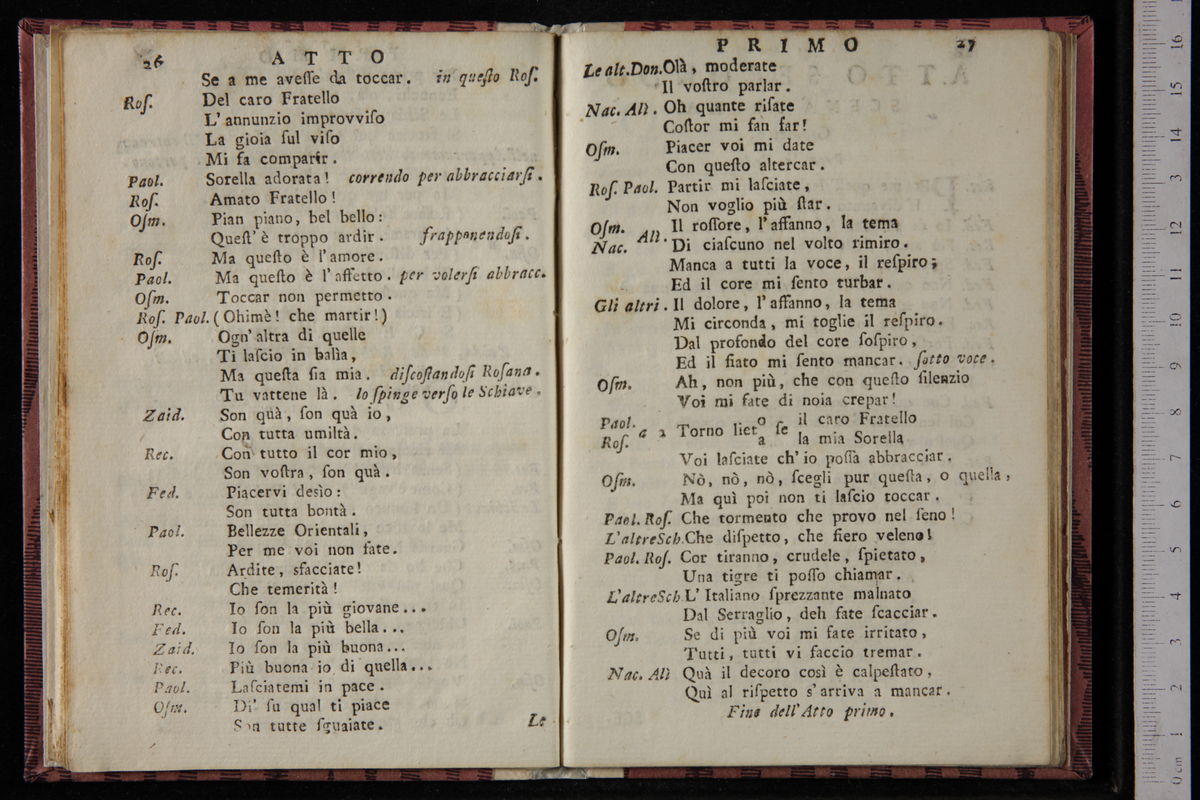 26 ATTO
Se a me aveſſe da toccar. in queſto Roſ.
Roſ. Del caro Fratello
L'annunzio improvviſo
La gioia ſul viſo
Mi fa comparir.
Paol. Sorella adorata! correndo per abbracciarſi.
Roſ. Amato Fratello!
Oſm. Pian piano, bel bello:
Queſt'è troppo ardir. frapponendoſi.
Roſ. Ma queſto è l'amore.
Paol. Ma queſto è l'affetto. per volerſi abbracc.
Oſm. Toccar non permetto.
Roſ. Paol. (Ohimè! che martir!)
Oſm. Ogn'altra di quelle
Ti laſcio in balìa,
Ma queſta ſia mia. diſcoſtandoſi Roſana.
Tu vattene là. lo ſpinge verſo le Schiave.
Zaid. Son quà, ſon quà io,
Con tutta umiltà.
Rec. Con tutto il cor mio,
Son voſtra, ſon quà.
Fed. Piacervi desìo:
Son tutta bontà.
Paol. Bellezze Orientali,
Per me voi non fate.
Roſ. Ardite, sfacciate!
Che temerità!
Rec. Io ſon la più giovane...
Fed. Io ſon la più bella...
Zaid. Io ſon la più buona...
Rec. Più buona io di quella...
Paol. Laſciatemi in pace.
Oſm. Di' ſu qual ti piace
Son tutte ſguaiate.
Le
PRIMO 27
Le alt. Don. Olà, moderate
Il voſtro parlar.
Nac. Alì. Oh quante riſate
Coſtor mi fan far!
Oſm. Piacer voi mi date
Con queſto altercar.
Roſ. Paol. Partir mi laſciate,
Non voglio più ſtar.
Oſm. Il roſſore, l'affanno, la tema
Nac. Alì. Di ciaſcuno nel volto rimiro.
Manca a tutti la voce, il reſpiro;
Ed il core mi ſento turbar.
Gli altri. Il dolore, l'affanno, la tema
Mi circonda, mi toglie il reſpiro.
Dal profondo del core ſoſpiro,
Ed il fiato mi ſento mancar. ſotto voce.
Oſm. Ah, non più, che con queſto ſilenzio
Voi mi fate di noia crepar!
Paol. a 2 Torno lieto ſe il caro Fratello
Roſ. a la mia Sorella
Voi laſciate ch'io poſſa abbracciar.
Oſm. Nò, nò, nò, ſcegli pur queſta, o quella,
Ma quì poi non ti laſcio toccar.
Paol. Roſ. Che tormento che provo nel ſeno!
L'altre Sch. Che diſpetto, che fiero veleno!
Paol. Roſ. Cor tiranno, crudele, ſpietato,
Una tigre ti poſſo chiamar.
L'altre Sch. L'Italiano ſprezzante malnato
Dal Serraglio, deh fate ſcacciar.
Oſm. Se di più voi mi fate irritato,
Tutti, tutti vi faccio tremar.
Nac. Alì Quà il decoro così è calpeſtato,
Quì al riſpetto s'arriva a mancar.
Fine dell'Atto primo.
0 cm 1 2 3 4 5 6 7 8 9 10 11 12 13 14 15 16